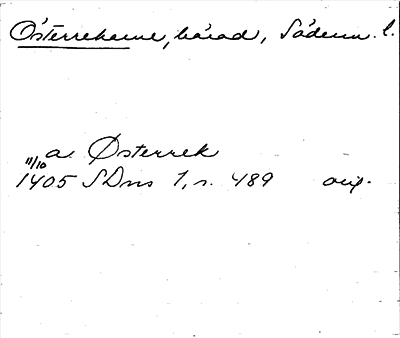 Österrekarne, härad, Söderm. l.
a Østerrek
11/10
1405 SDns 1, s. 489 orig.